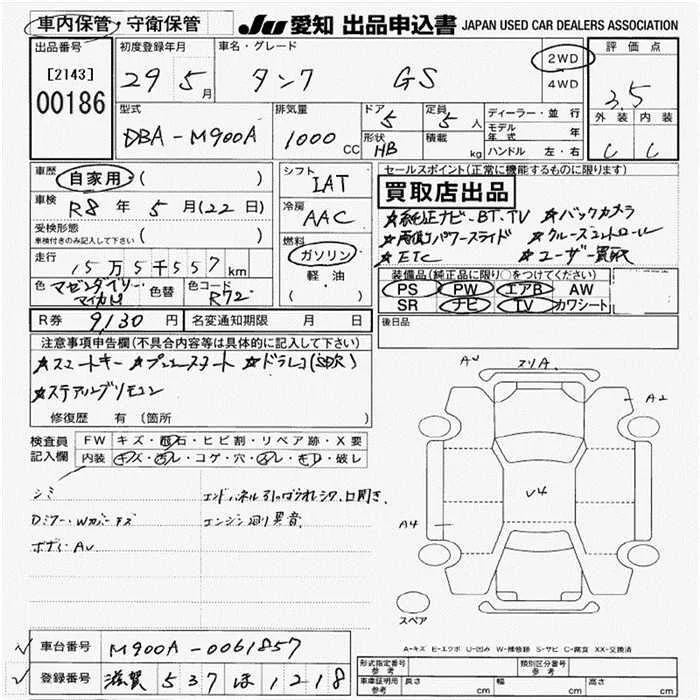 車内保管・守衛保管 JU 愛知 出品申込書 JAPAN USED CAR DEALERS ASSOCIATION
出品番号 [2143] 00186
初度登録年月 29 5月
車名・グレード タンク GS
2WD 4WD
評価点 3.5
外装 内装 C C
型式 DBA-M900A
排気量 1000 CC
ドア 5 定員 5人
形状 HB 積載 kg
ディーラー・並行
モデル年式 年
ハンドル 左・右
車歴 自家用 ( )
車検 R8年 5月(22日)
受検形態
車検付きのみ記入して下さい ( )
走行 15万5千557km
色 マゼンダベリーマイカM 色替 色コード R72
シフト IAT
冷房 AAC
燃料 ガソリン
軽・油
( )
セールスポイント(正常に機能するものに限ります)
買取店出品
☆純正ナビ、BT、TV ☆バックカメラ
☆両側パワースライド ☆クルーズコントロール
☆ETC ☆ユーザー買取
装備品(純正品に限り○をつけてください)
PS PW エアB AW
SR ナビ TV カワシート
R券 9130円 名変通知期限 月 日
後日品
注意事項申告欄(不具合内容等は具体的に記入して下さい)
☆スマートキー ☆プッシュスタート ☆ドラレコ(SDR)
☆ステアリングリモコン
修復歴 有 (箇所 )
検査員記入欄
FW キズ・飛石・ヒビ割・リペア跡・X要
内装 キズ・汚レ・コゲ・穴・スレ・キレ・破レ
シミ
Dミラー・Wカバーキズ
ボディAU
エンジン廻り異音
AU スリA
A2
U4
A4
スペア
A-キズ E-エクボ U-凹み W-補修跡 S-サビ C-腐食 XX-交換済
車台番号 M900A-0061857
登録番号 滋賀 537 ほ 1218
形式指定番号 参考 類別区分番号 参考
車庫証明用 参考 長さ cm 幅 cm 高さ cm